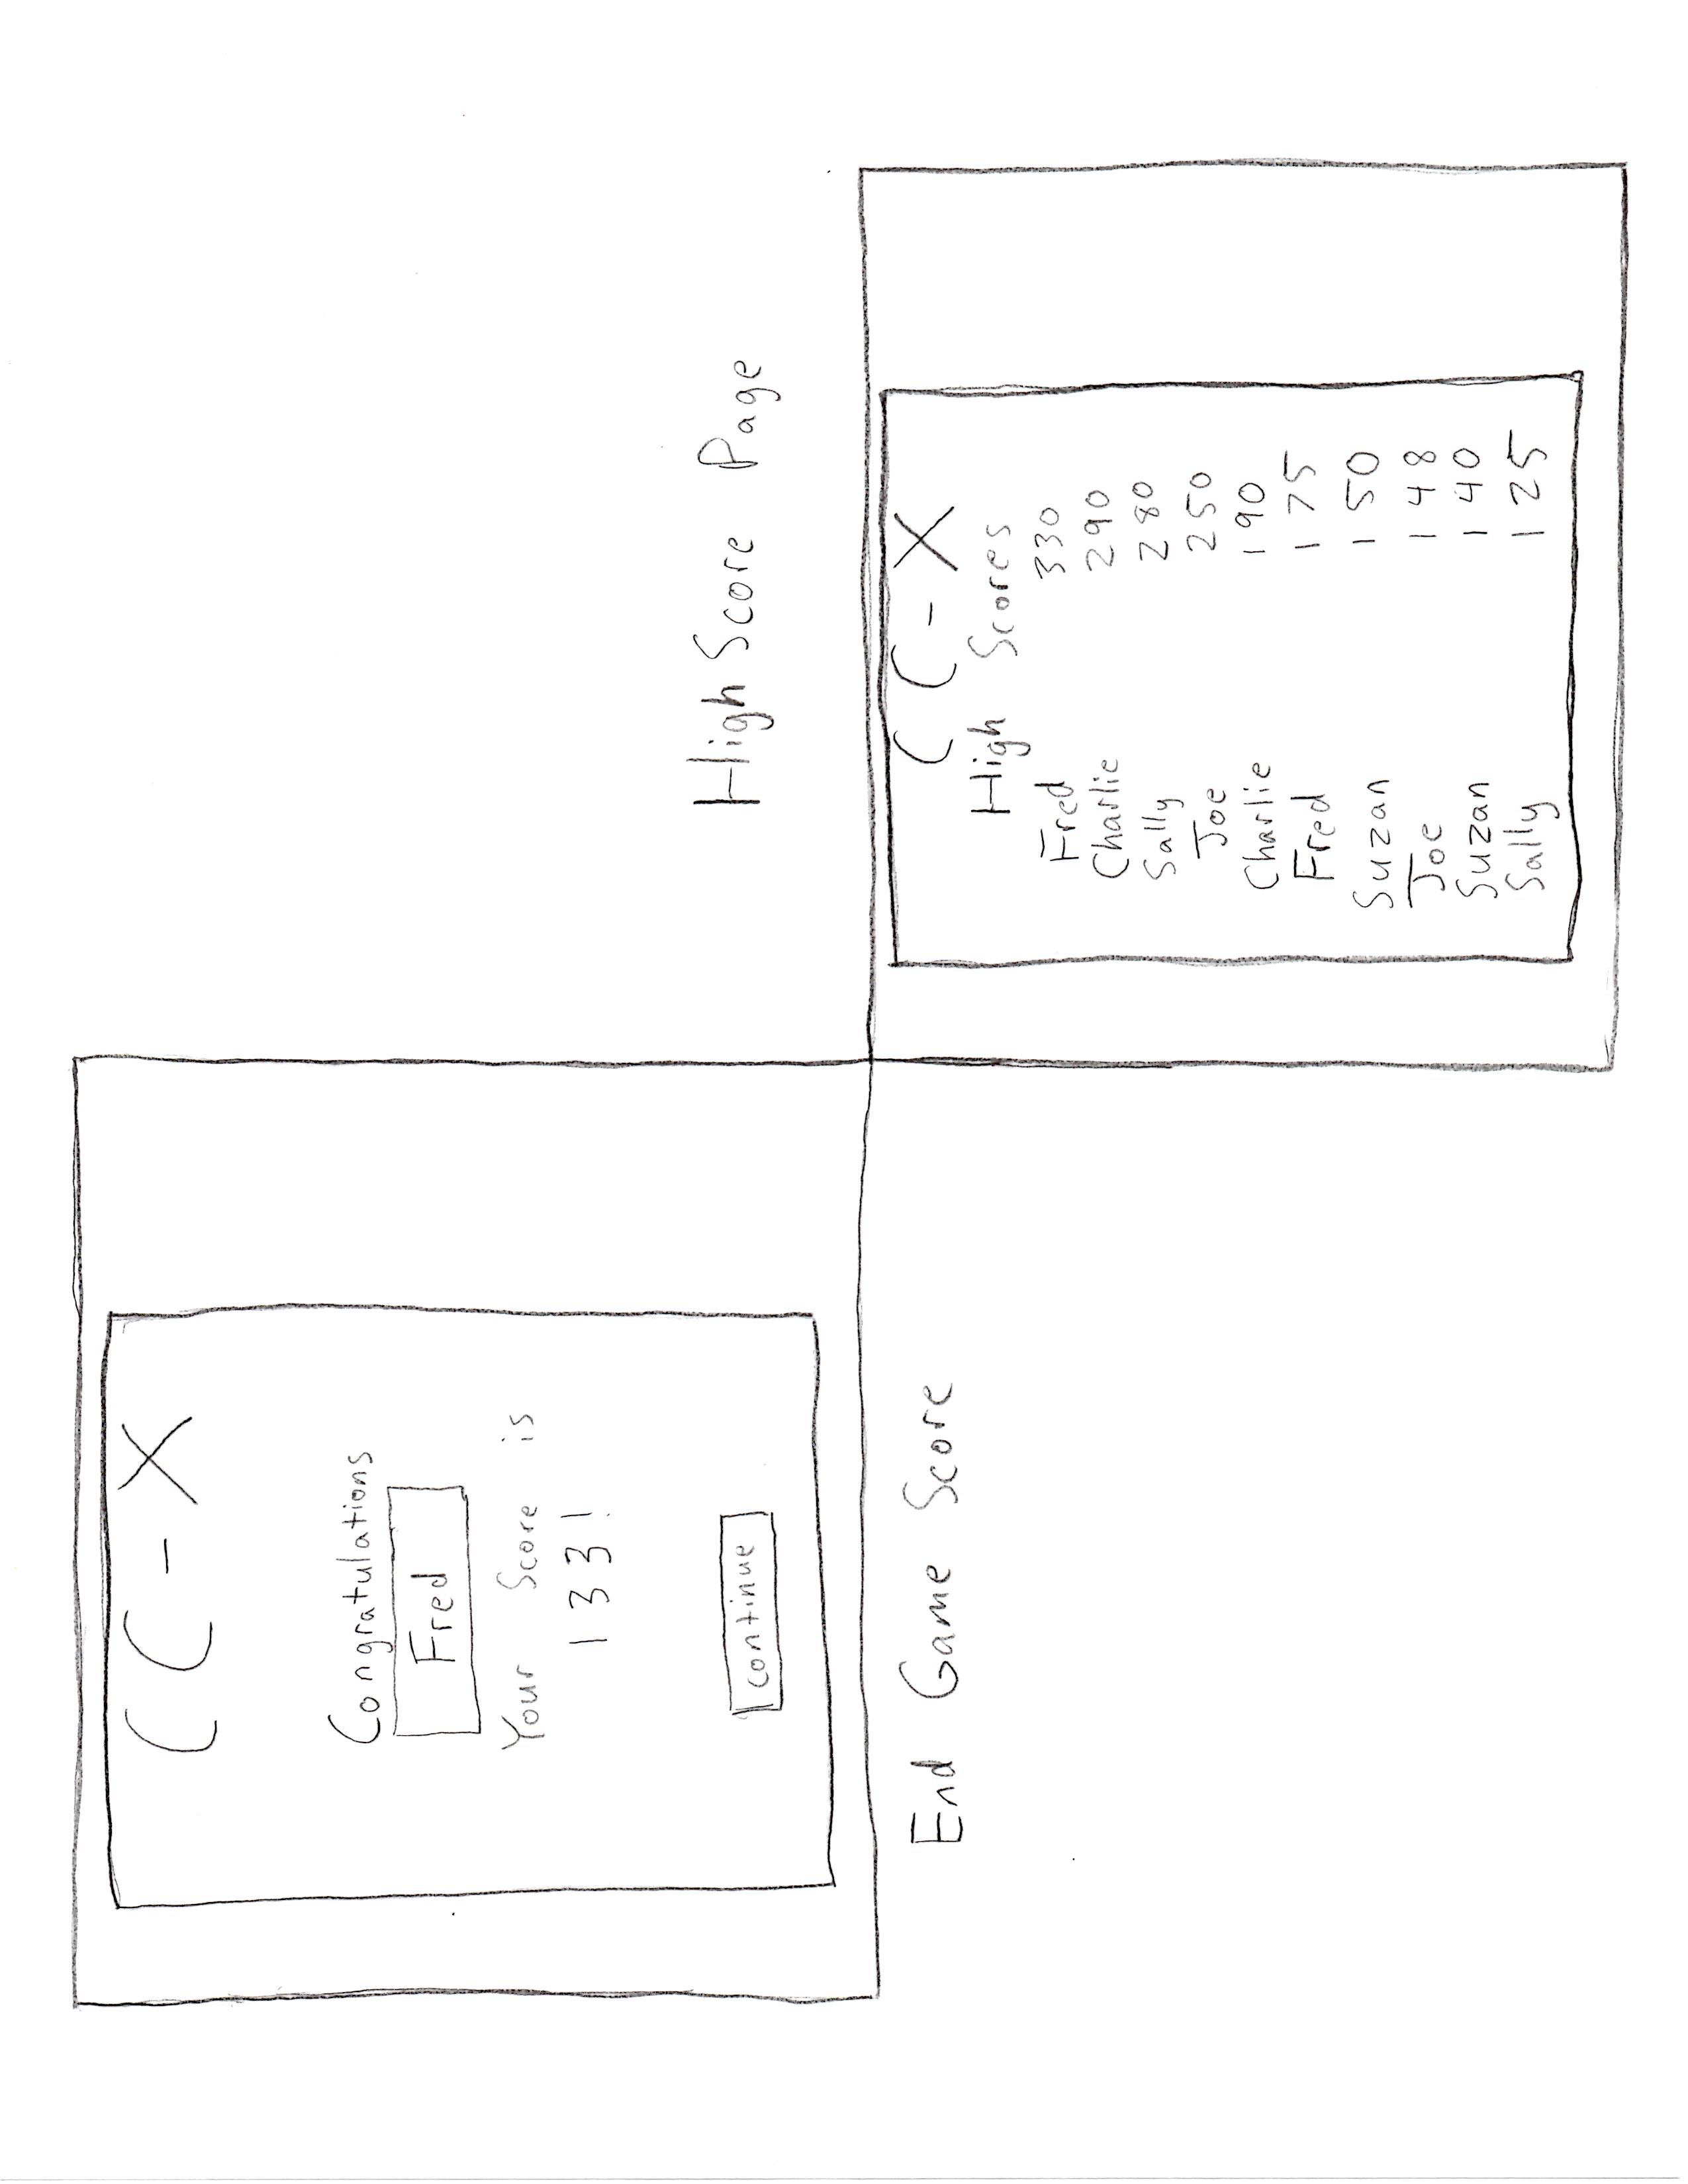 CC-X
Congratulations
Fred
Your Score is
133!
continue
End Game Score
High Score Page
CC-X
High Scores
Fred 330
Charlie 290
Sally 280
Joe 250
Charlie 190
Fred 175
Suzan 150
Joe 148
Suzan 140
Sally 125